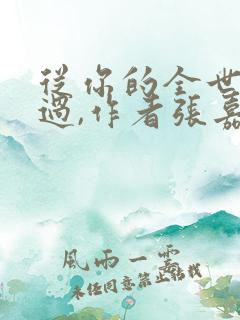 從你的全世
過,作者張嘉
風雨一霎
未经同意禁止转载